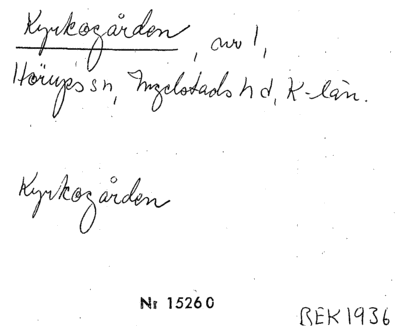 Kyrkogården, avs 1,
Hörups sn, Ingelstads hd, K-län.
Kyrkogården
Nr 15260
BEK 1936